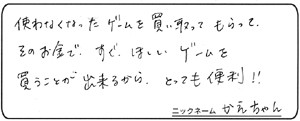 使わなくなったゲームを買い取ってもらって、
そのお金で、すぐ、ほしいゲームを
買うことが出来るから、とっても便利!!
ニックネーム かえちゃん